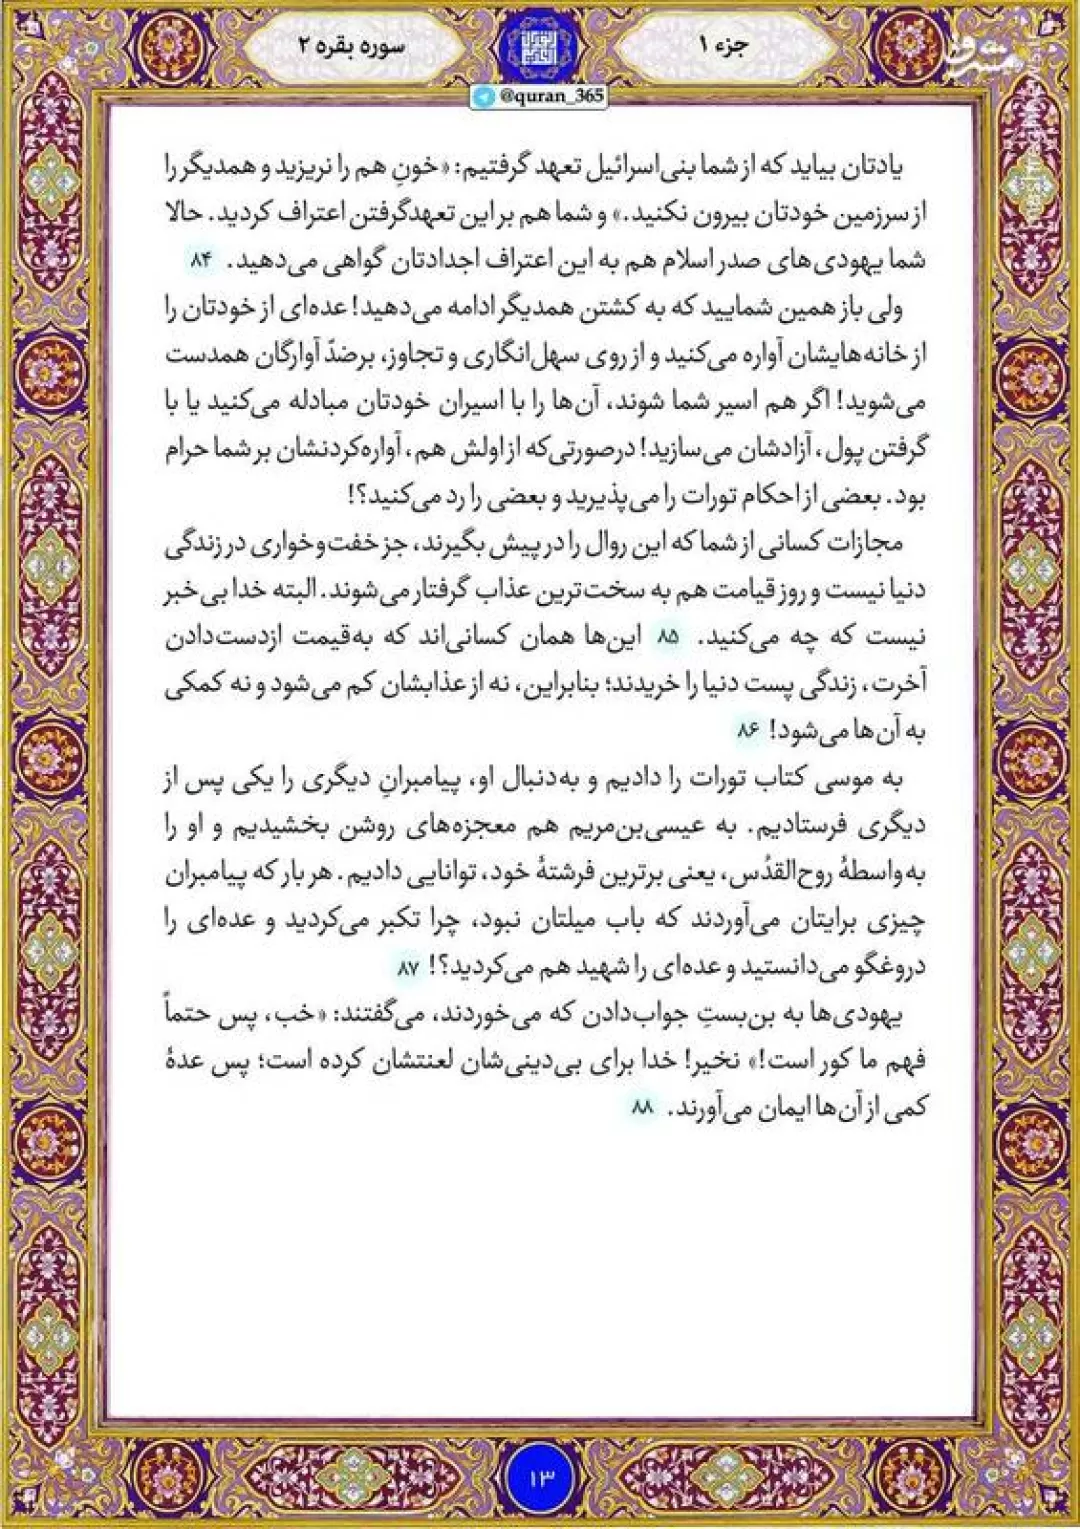 جزء ۱
سوره بقره ۲
@quran_365
مشرق
یادتان بیاید که از شما بنی‌اسرائیل تعهد گرفتیم: «خونِ هم را نریزید و همدیگر را
از سرزمین خودتان بیرون نکنید.» و شما هم بر این تعهدگرفتن اعتراف کردید. حالا
شما یهودی‌های صدر اسلام هم به این اعتراف اجدادتان گواهی می‌دهید. ۸۴
ولی باز همین شمایید که به کشتن همدیگر ادامه می‌دهید! عده‌ای از خودتان را
از خانه‌هایشان آواره می‌کنید و از روی سهل‌انگاری و تجاوز، برضدّ آوارگان همدست
می‌شوید! اگر هم اسیر شما شوند، آن‌ها را با اسیران خودتان مبادله می‌کنید یا با
گرفتن پول، آزادشان می‌سازید! درصورتی‌که از اولش هم، آواره‌کردنشان بر شما حرام
بود. بعضی از احکام تورات را می‌پذیرید و بعضی را رد می‌کنید؟!
مجازات کسانی از شما که این روال را در پیش بگیرند، جز خفت‌وخواری در زندگی
دنیا نیست و روز قیامت هم به سخت‌ترین عذاب گرفتار می‌شوند. البته خدا بی‌خبر
نیست که چه می‌کنید. ۸۵ این‌ها همان کسانی‌اند که به‌قیمت ازدست‌دادن
آخرت، زندگی پست دنیا را خریدند؛ بنابراین، نه از عذابشان کم می‌شود و نه کمکی
به آن‌ها می‌شود! ۸۶
به موسی کتاب تورات را دادیم و به‌دنبال او، پیامبرانِ دیگری را یکی پس از
دیگری فرستادیم. به عیسی‌بن‌مریم هم معجزه‌های روشن بخشیدیم و او را
به‌واسطهٔ روح‌القدُس، یعنی برترین فرشتهٔ خود، توانایی دادیم. هر بار که پیامبران
چیزی برایتان می‌آوردند که باب میلتان نبود، چرا تکبر می‌کردید و عده‌ای را
دروغگو می‌دانستید و عده‌ای را شهید هم می‌کردید؟! ۸۷
یهودی‌ها به بن‌بستِ جواب‌دادن که می‌خوردند، می‌گفتند: «خب، پس حتماً
فهم ما کور است!» نخیر! خدا برای بی‌دینی‌شان لعنتشان کرده است؛ پس عدهٔ
کمی از آن‌ها ایمان می‌آورند. ۸۸
۱۳